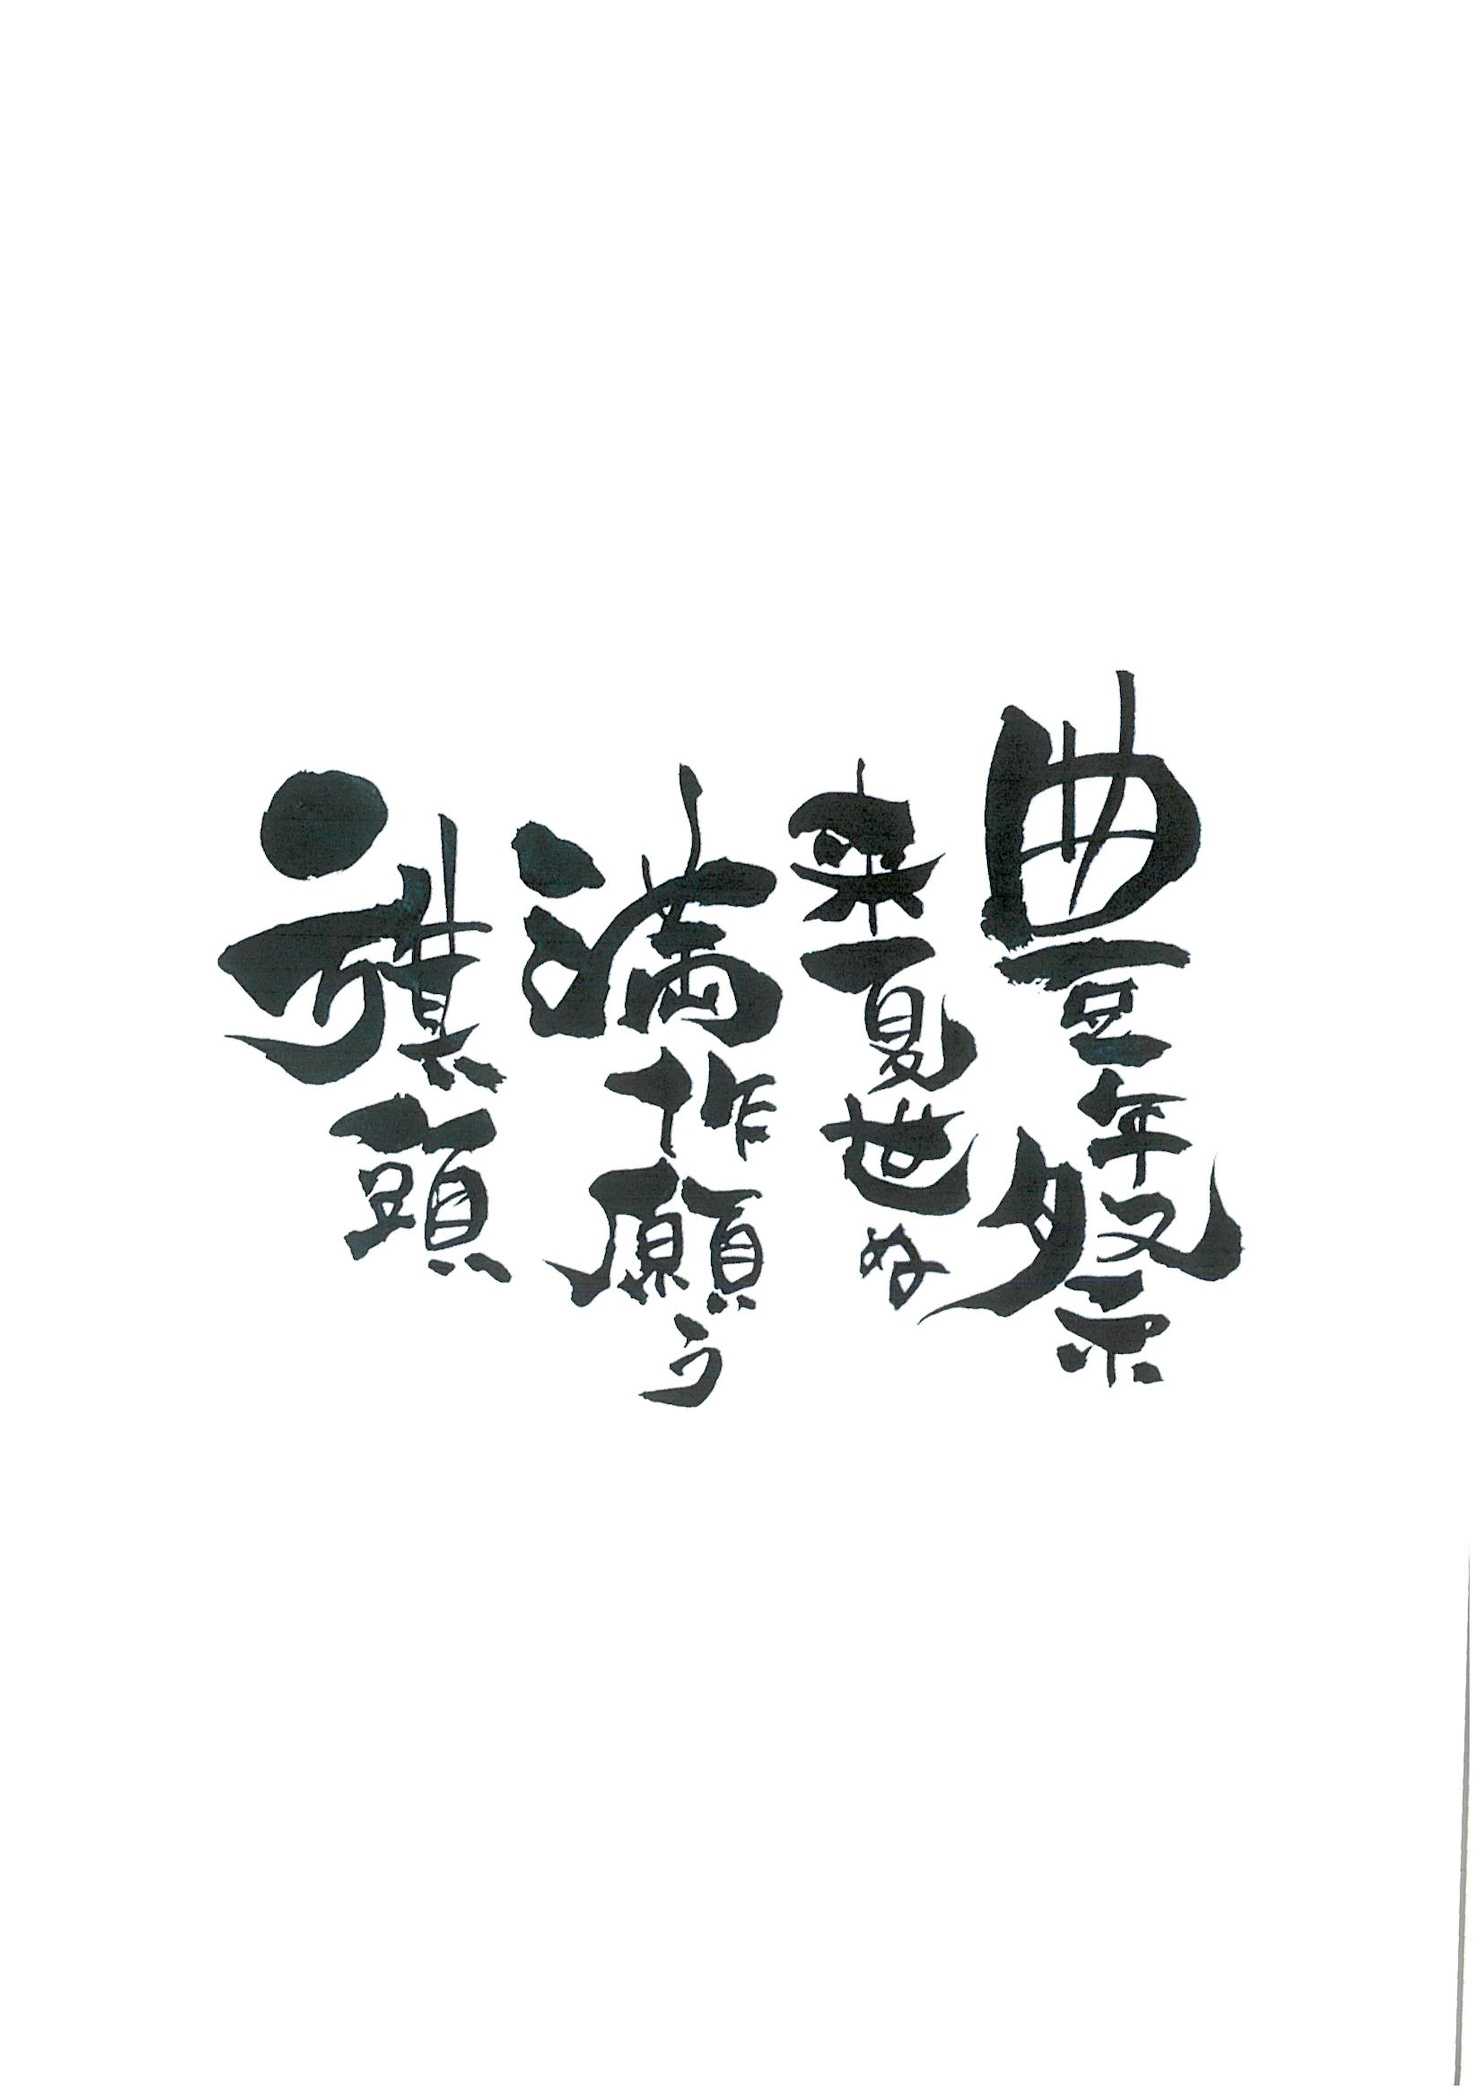 豊年祭
来夏世ぬ
満作願う
旗頭